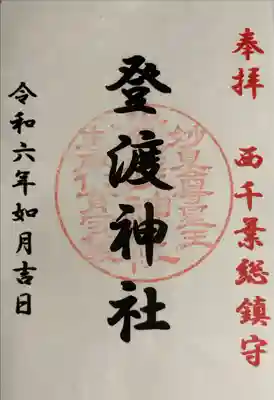 奉拝
西千葉総鎮守
登渡神社
令和六年如月吉日